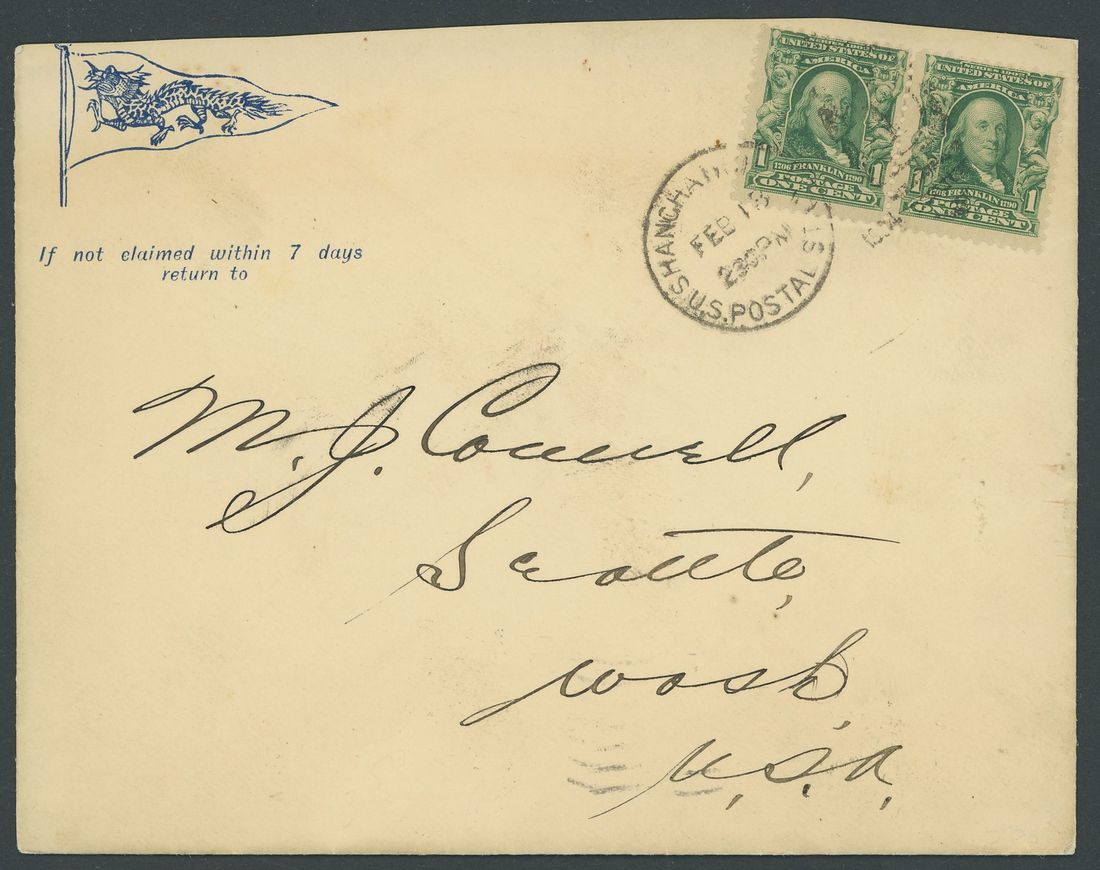 If not claimed within 7 days
return to
SERIES 1902
UNITED STATES OF
AMERICA
1 1706 FRANKLIN 1790 1
POSTAGE
ONE CENT
SERIES 1902
UNITED STATES OF
AMERICA
1 1706 FRANKLIN 1790 1
POSTAGE
ONE CENT
SHANGHAI
FEB 18
230PM
U.S. POSTAL
M. J. Connell,
Seattle,
Wash,
U.S.A.